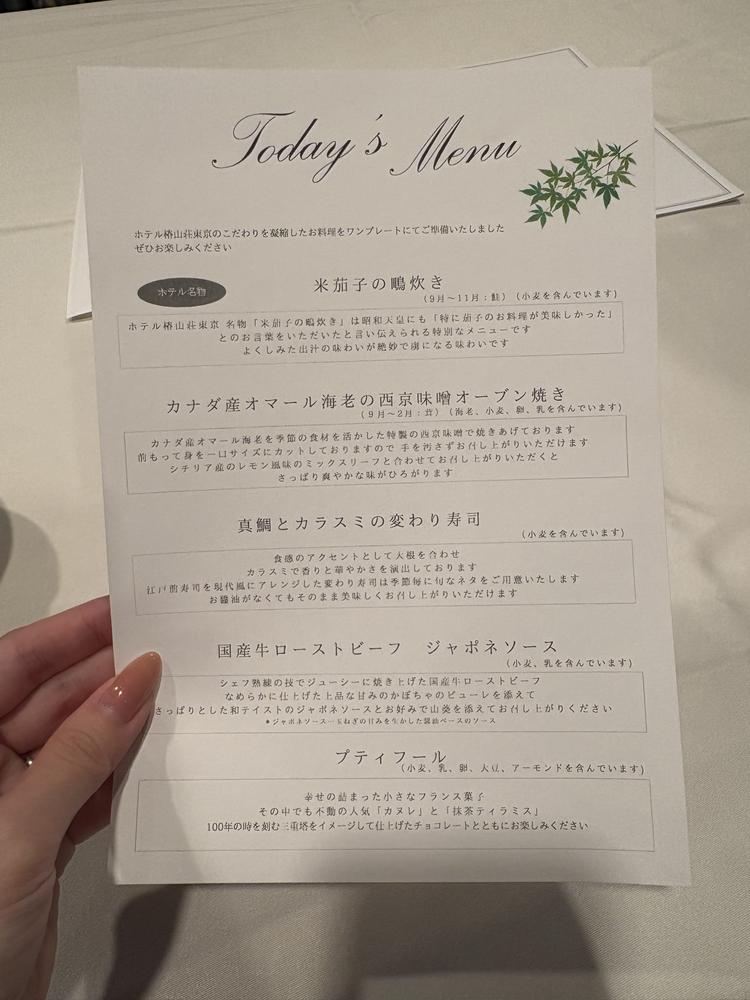 Today's Menu
ホテル椿山荘東京のこだわりを凝縮したお料理をワンプレートにてご準備いたしました
ぜひお楽しみください
ホテル名物
米茄子の鴫炊き
(9月～11月：鮭) (小麦を含んでいます)
ホテル椿山荘東京 名物「米茄子の鴫炊き」は昭和天皇にも「特に茄子のお料理が美味しかった」
とのお言葉をいただいたと言い伝えられる特別なメニューです
よくしみた出汁の味わいが絶妙で虜になる味わいです
カナダ産オマール海老の西京味噌オーブン焼き
(9月～2月：茸) (海老、小麦、卵、乳を含んでいます)
カナダ産オマール海老を季節の食材を活かした特製の西京味噌で焼きあげております
前もって身を一口サイズにカットしておりますので 手を汚さずお召し上がりいただけます
シチリア産のレモン風味のミックスリーフと合わせてお召し上がりいただくと
さっぱり爽やかな味がひろがります
真鯛とカラスミの変わり寿司
(小麦を含んでいます)
食感のアクセントとして大根を合わせ
カラスミで香りと華やかさを演出しております
江戸前寿司を現代風にアレンジした変わり寿司は季節毎に旬なネタをご用意いたします
お醤油がなくてもそのまま美味しくお召し上がりいただけます
国産牛ローストビーフ ジャポネソース
(小麦、乳を含んでいます)
シェフ熟練の技でジューシーに焼き上げた国産牛ローストビーフ
なめらかに仕上げた上品な甘みのかぼちゃのピューレを添えて
さっぱりとした和テイストのジャポネソースとお好みで山葵を添えてお召し上がりください
*ジャポネソース…玉ねぎの甘みを生かした醤油ベースのソース
プティフール
(小麦、乳、卵、大豆、アーモンドを含んでいます)
幸せの詰まった小さなフランス菓子
その中でも不動の人気「カヌレ」と「抹茶ティラミス」
100年の時を刻む三重塔をイメージして仕上げたチョコレートとともにお楽しみください